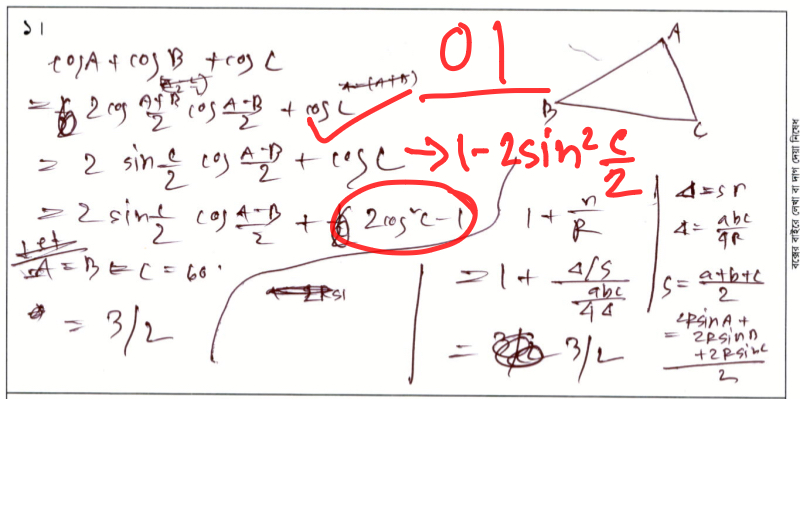 ১।
cosA + cosB + cosC
01
= 2 cos A+B/2 cos A-B/2 + cosC
= 2 sin c/2 cos A-B/2 + cosC → 1-2sin² c/2
= 2 sin c/2 cos A-B/2 + 2cos²c-1
Let
A = B = C = 60°
= 3/2
1 + r/R
= 1 + Δ/S / abc/4Δ
= 3/2
Δ = sr
Δ = abc/4R
S = a+b+c/2
= 2RsinA + 2RsinB + 2RsinC / 2
A
B
C
বক্সের বাইরে লেখা বা দাগ দেয়া নিষেধ